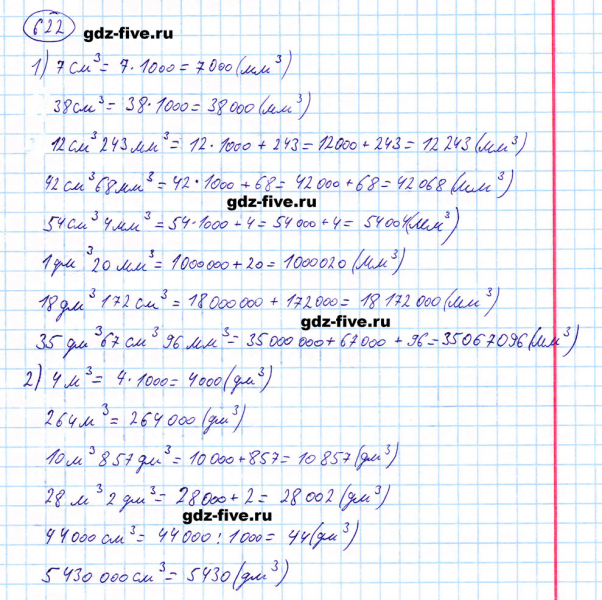 622 gdz-five.ru
1) 7 см³ = 7·1000 = 7000 (мм³)
38 см³ = 38·1000 = 38 000 (мм³)
12 см³ 243 мм³ = 12·1000 + 243 = 12000 + 243 = 12 243 (мм³)
42 см³ 68 мм³ = 42·1000 + 68 = 42 000 + 68 = 42 068 (мм³)
gdz-five.ru
54 см³ 4 мм³ = 54·1000 + 4 = 54 000 + 4 = 54 004 (мм³)
1 дм³ 20 мм³ = 1000 000 + 20 = 1000 020 (мм³)
18 дм³ 172 см³ = 18 000 000 + 172 000 = 18 172 000 (мм³)
gdz-five.ru
35 дм³ 67 см³ 96 мм³ = 35 000 000 + 67 000 + 96 = 35 067 096 (мм³)
2) 4 м³ = 4·1000 = 4000 (дм³)
264 м³ = 264 000 (дм³)
10 м³ 857 дм³ = 10 000 + 857 = 10 857 (дм³)
28 м³ 2 дм³ = 28 000 + 2 = 28 002 (дм³)
gdz-five.ru
44 000 см³ = 44 000 : 1000 = 44 (дм³)
5 430 000 см³ = 5430 (дм³)